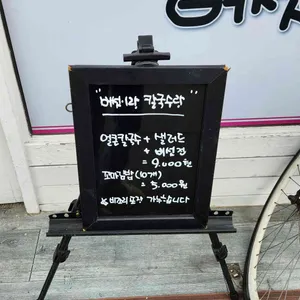 "버섯이랑 칼국수랑"
얼큰칼국수 + 샐러드
+ 버섯전
= 9,000원
꼬마김밥(10개)
= 5,000원
※ 비조리 포장 가능합니다